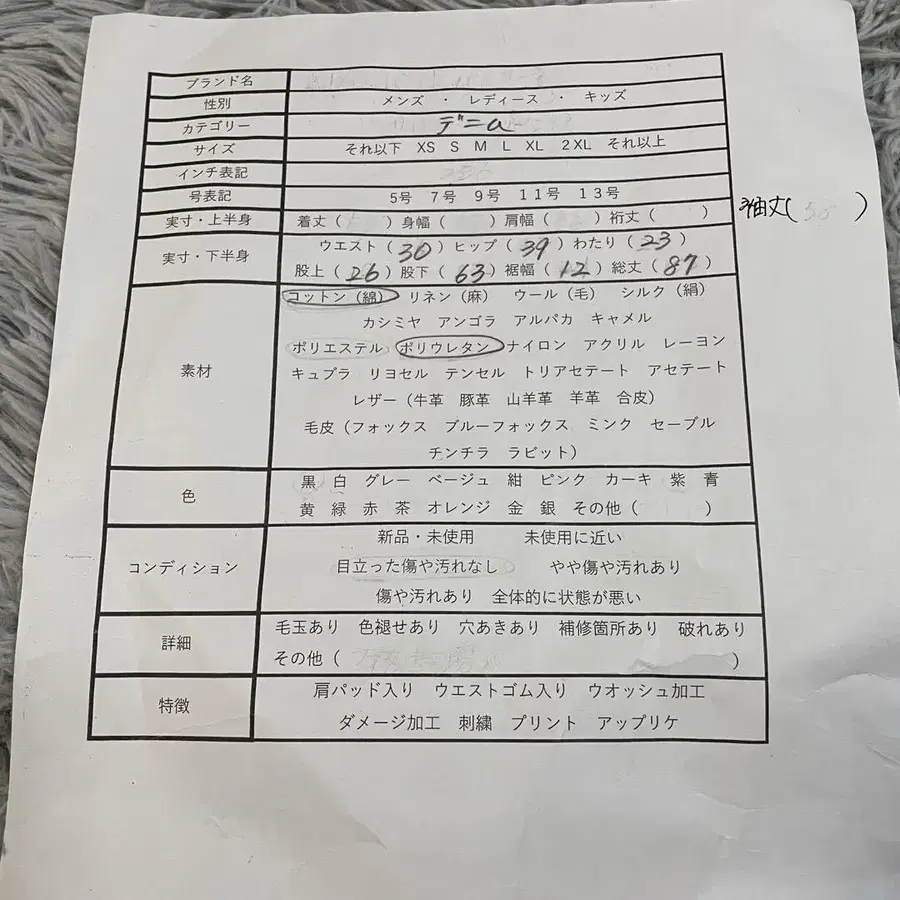 ブランド名
性別 メンズ ・ レディース ・ キッズ
カテゴリー デニム
サイズ それ以下 XS S M L XL 2XL それ以上
インチ表記
号表記 5号 7号 9号 11号 13号
実寸・上半身 着丈( ) 身幅( ) 肩幅( ) 裄丈( ) 袖丈( )
実寸・下半身 ウエスト(30) ヒップ(39) わたり(23)
股上(26) 股下(63) 裾幅(12) 総丈(87)
素材 コットン(綿) リネン(麻) ウール(毛) シルク(絹)
カシミヤ アンゴラ アルパカ キャメル
ポリエステル ポリウレタン ナイロン アクリル レーヨン
キュプラ リヨセル テンセル トリアセテート アセテート
レザー(牛革 豚革 山羊革 羊革 合皮)
毛皮(フォックス ブルーフォックス ミンク セーブル
チンチラ ラビット)
色 黒 白 グレー ベージュ 紺 ピンク カーキ 紫 青
黄 緑 赤 茶 オレンジ 金 銀 その他( )
コンディション 新品・未使用 未使用に近い
目立った傷や汚れなし やや傷や汚れあり
傷や汚れあり 全体的に状態が悪い
詳細 毛玉あり 色褪せあり 穴あきあり 補修箇所あり 破れあり
その他( )
特徴 肩パッド入り ウエストゴム入り ウオッシュ加工
ダメージ加工 刺繍 プリント アップリケ